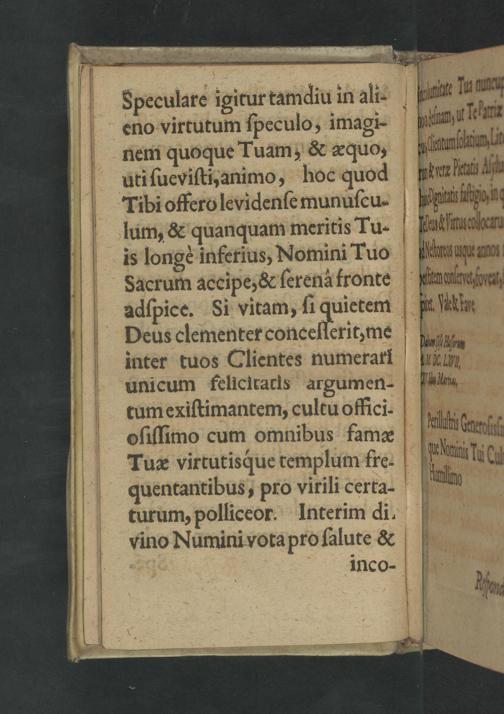 Speculare igitur tamdiu in ali-
eno virtutum ſpeculo, imagi-
nem quoque Tuam, & æquo,
uti ſueviſti, animo, hoc quod
Tibi offero levidenſe munuſcu-
lum, & quanquam meritis Tu-
is longè inferius, Nomini Tuo
Sacrum accipe, & ſerenâ fronte
adſpice. Si vitam, ſi quietem
Deus clementer conceſſerit, me
inter tuos Clientes numerari
unicum felicitatis argumen-
tum exiſtimantem, cultu offici-
oſiſſimo cum omnibus famæ
Tuæ virtutisq́ue templum fre-
quentantibus, pro virili certa-
turum, polliceor. Interim di-
vino Numini vota pro ſalute &
inco-
Tua nuncup
ut Te Patriæ
Clientum ſolatium, Lite
& veræ Pietatis
Dignitatis faſtigio, in q
Deus & Virtus collocaru
Neſtoreos usque annos
conſervet, foveat,
Vale & Fave
Perilluſtris Generoſiſ
que Nominis Tui Cul
Humillimo
Reſpond